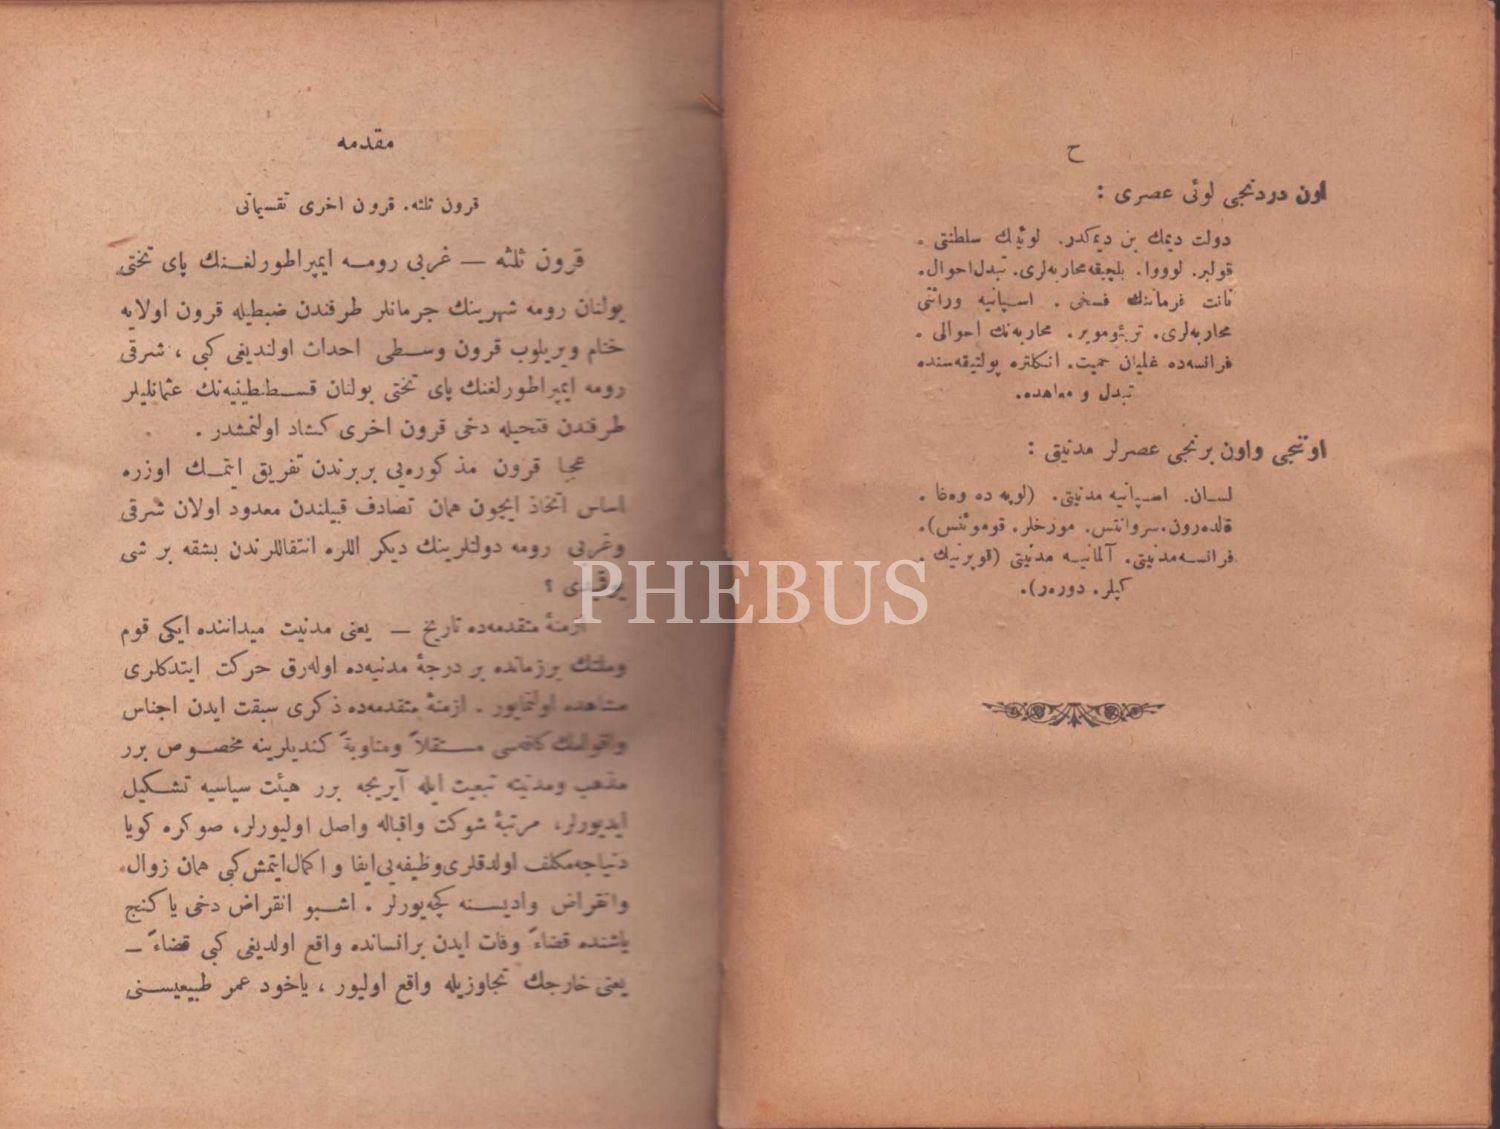 ح
اون دردنجی لوئی عصری :
دولت دیمك بن دیمكدر. لوئینك سلطنتی .
قولبر. لووو‌ا. بلچیقه محاربه‌لری. تبدل احوال.
نانت فرماننك فسخی . اسپانیه وراثتی
محاربه‌لری. تریئوموِیر. محاربه‌نك احوالی .
فرانسه‌ده غلیان حمیت. انكلتره پولتیقه‌سنده
تبدل و معاهده.
اوننجی واون برنجی عصرلر مدنیتی :
لسان. اسپانیه مدنیتی. (لوپه ده وه‌غا .
قلده‌رون. سروانتس. مورخلر. قوموئنس).
فرانسه مدنیتی. آلمانیه مدنیتی (قوپرنیك .
كپلر. دوره‌ر).
مقدمه
قرون ثلثه. قرون اخری تقسیماتی
قرون ثلثه — غربی رومه ایمپراطورلغنك پای تختی
بولنان رومه شهرینك جرمانلر طرفندن ضبطیله قرون اولایه
ختام ویریلوب قرون وسطی احداث اولندیغی كبی ، شرقی
رومه ایمپراطورلغنك پای تختی بولنان قسطنطینیه‌نك عثمانلیلر
طرفندن فتحیله دخی قرون اخری كشاد اولنمشدر .
عجبا قرون مذكوره‌یی بربرندن تفریق ایتمك اوزره
اساس اتخاذ ایچون همان تصادف قبیلندن معدود اولان شرقی
وغربی رومه دولتلرینك دیكر اللره انتقاللرندن بشقه بر شی
یوقمیدی ؟
ازمنهٔ متقدمه‌ده تاریخ — یعنی مدنیت میداننده ایكی قوم
وملتك برزمانده بر درجهٔ مدنیه‌ده اوله‌رق حركت ایتدكلری
مشاهده اولنمایور . ازمنهٔ متقدمه‌ده ذكری سبقت ایدن اجناس
واقوامك كافه‌سی مستقلاً ومناوبةً كندیلرینه مخصوص برر
مذهب ومدنیته تبعیت ایله آیریجه برر هیئت سیاسیه تشكیل
ایدیورلر، مرتبهٔ شوكت واقباله واصل اولیورلر، صوكره كویا
دنیاجه مكلف اولدقلری وظیفه‌یی ایفا و اكمال ایتمش كبی همان زوال
وانقراض وادیسنه كچه‌یورلر . اشبو انقراض دخی یا كنج
یاشنده قضاءً وفات ایدن برانسانده واقع اولدیغی كبی قضاءً —
یعنی خارجك تجاوزیله واقع اولیور ، یاخود عمر طبیعیسنی
PHEBUS